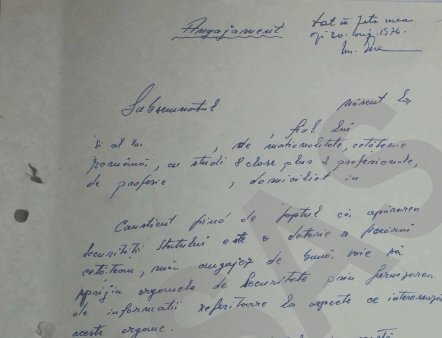 Angajament
dat în fața mea
azi 20. aug. 1974.
Subsemnatul născut la
și al lui , fiul lui
, de naționalitate, cetățenie
română, cu studii 8 clase plus 3 profesionale,
de profesie , domiciliat în
Conștient fiind de faptul că apărarea
securității Statului este o datorie a fiecărui
cetățean, mă angajez de bună voie să
sprijin organele de Securitate prin furnizarea
de informații referitoare la aspecte ce interesează
aceste organe.